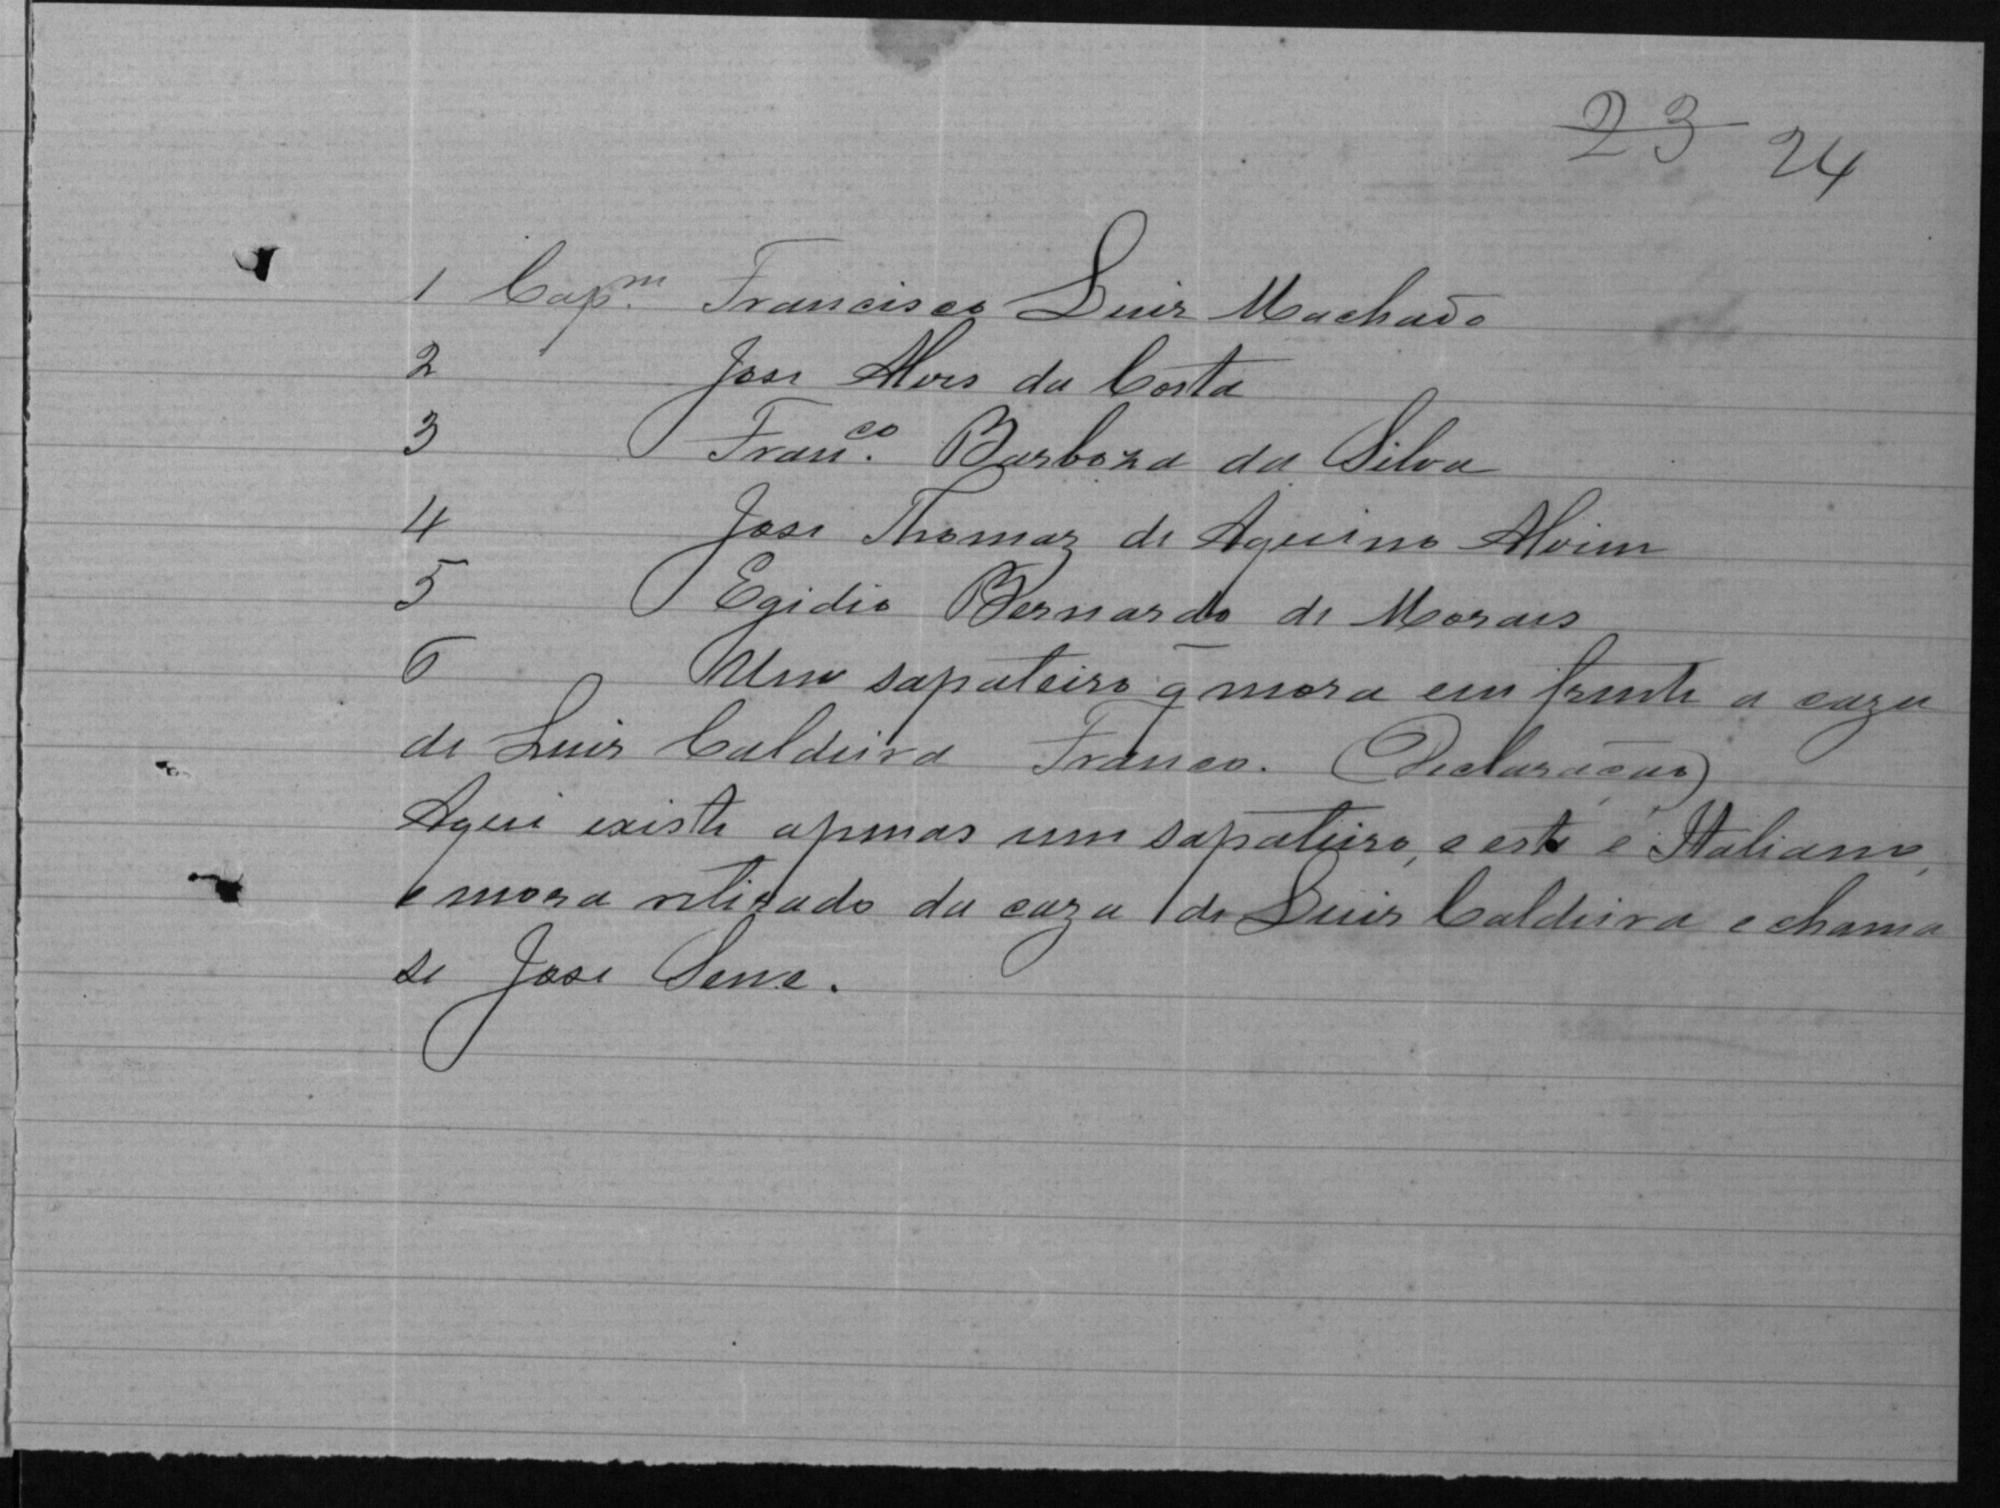 23 24
1 Capm. Francisco Luis Machado
2 Jose Alves da Costa
3 Franco. Barboza da Silva
4 Jose Thomaz de Aquino Alvim
5 Egidio Bernardo de Moraes
6 Um sapateiro q̄ mora em frente a caza
de Luis Caldeira Franco. (Declaração)
Aqui existe apenas um sapateiro, e este é Italiano,
e mora retirado da caza de Luis Caldeira e chama
se Jose